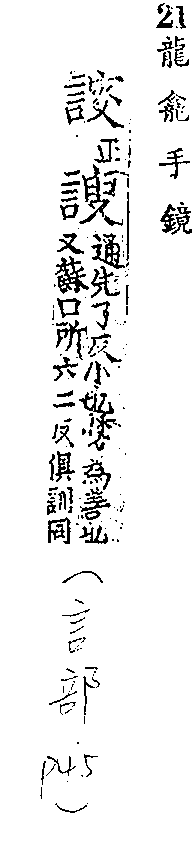 21 龍龕手鏡
正謏
通先了反小也誘為善也
又蘇口所六二反俱訓同
(言部 P45)